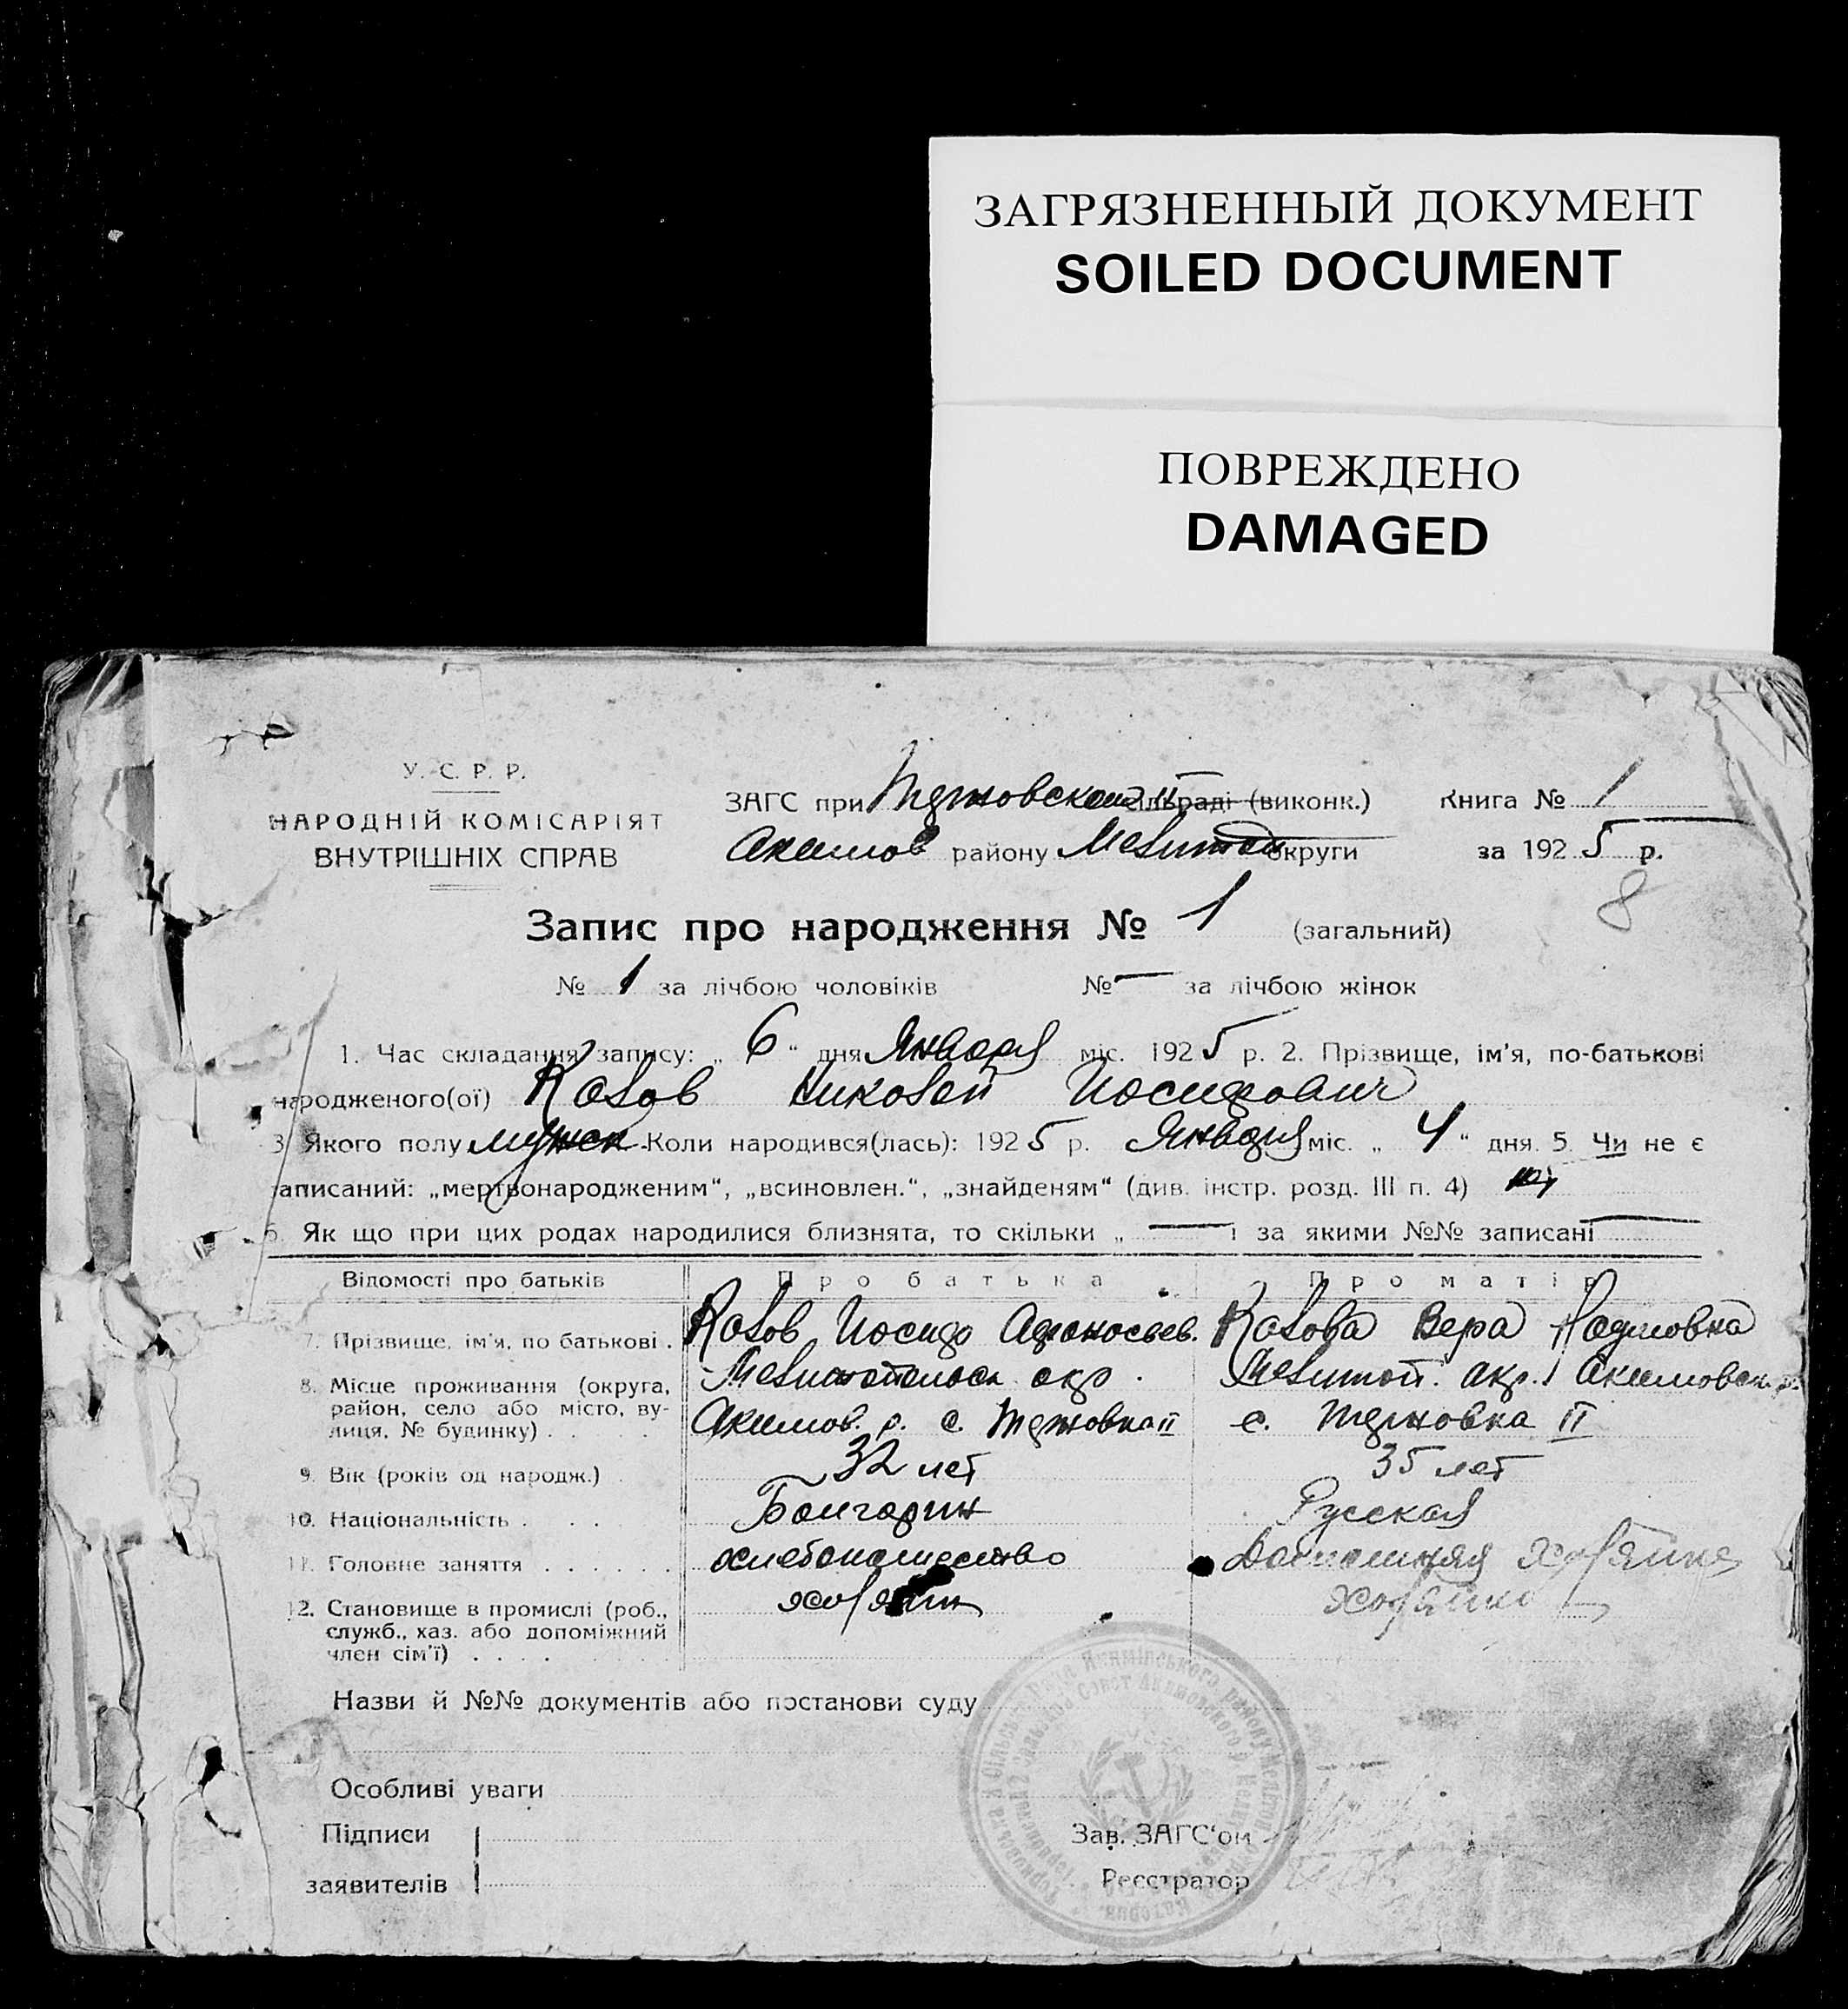 ЗАГРЯЗНЕННЫЙ ДОКУМЕНТ
SOILED DOCUMENT
ПОВРЕЖДЕНО
DAMAGED
У. С. Р. Р.
НАРОДНІЙ КОМІСАРІЯТ
ВНУТРІШНІХ СПРАВ
ЗАГС при сільраді (виконк.)
Книга № 1
Акимов району Мелитоп округи
за 1925 р.
8
Запис про народження № 1 (загальний)
№ 1 за лічбою чоловіків № — за лічбою жінок
1. Час складання запису: „ 6 “ дня Января міс. 1925 р. 2. Прізвище, ім'я, по-батькові
народженого(ої) Колов Николай Иосифович
3 Якого полу мужск. Коли народився(лась): 1925 р. Января міс. „ 4 “ дня. 5. Чи не є
записаний: „мертвонародженим“, „всиновлен.“, „знайденям“ (див. інстр. розд. III п. 4)
6. Як що при цих родах народилися близнята, то скільки „ — і за якими №№ записані —
Відомості про батьків Про батька Про матір
7. Прізвище, ім'я, по батькові . Колов Иосиф Афонасьев. Колова Вера Наумовна
8. Місце проживання (округа, Мелитопольск окр. Мелитоп. окр. Акимовск. р.
район, село або місто, вулиця, № будинку) . . . Акимов. р. с. Терновка II с. Терновка II
9. Вік (років од народж.) . 32 лет 35 лет
10. Національність . . . Болгарин Русская
11. Головне заняття . . . . . . хлебопашество Домашняя хозяйка
12. Становище в промислі (роб., хозяин хозяйка
служб., хаз. або допоміжний
член сім'ї) . . . .
Назви й №№ документів або постанови суду
Особливі уваги
Підписи
заявителів
Зав. ЗАГС'ом
Реєстратор